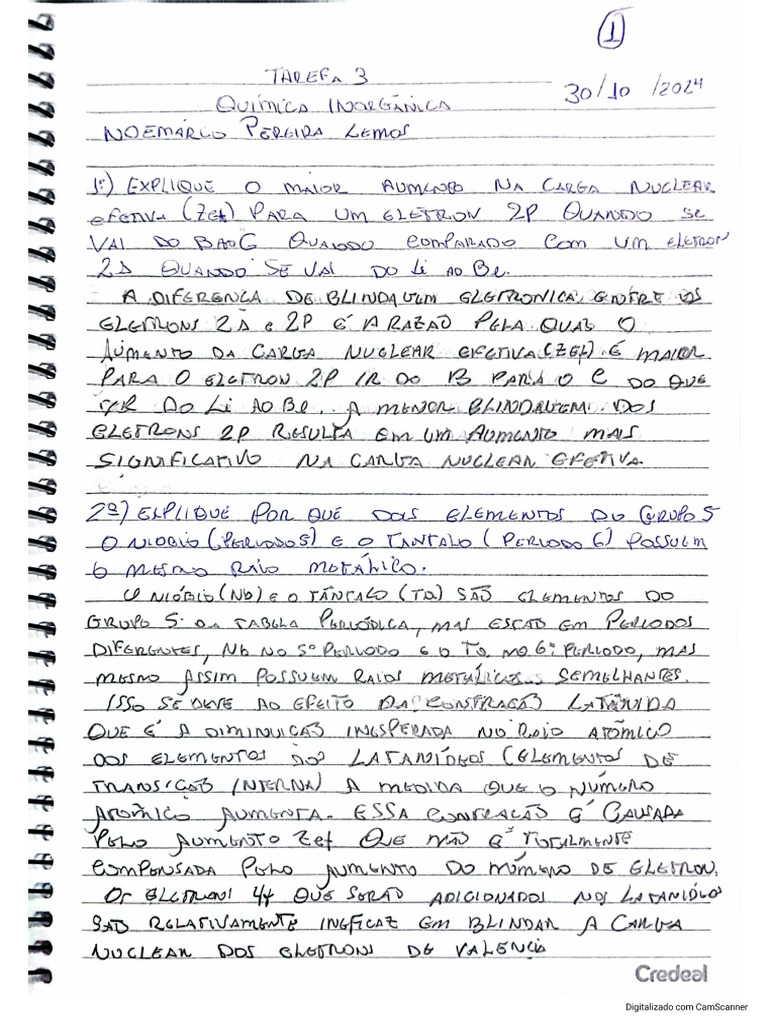 1
TAREFA 3
30/10/2024
QUÍMICA INORGÂNICA
NOEMÁRIO PEREIRA LEMOS
1º) EXPLIQUE O MAIOR AUMENTO NA CARGA NUCLEAR
EFETIVA (Zef) PARA UM ELETRON 2P QUANDO SE
VAI DO B AO C QUANDO COMPARADO COM UM ELETRON
2s QUANDO SE VAI DO Li AO Be.
A DIFERENÇA DE BLINDAGEM ELETRONICA ENTRE OS
ELETRONS 2s E 2P É A RAZÃO PELA QUAL O
AUMENTO DA CARGA NUCLEAR EFETIVA (Zef) É MAIOR
PARA O ELETRON 2P IR DO B PARA O C DO QUE
IR DO Li AO Be. A MENOR BLINDAGEM DOS
ELETRONS 2P RESULTA EM UM AUMENTO MAIS
SIGNIFICATIVO NA CARGA NUCLEAR EFETIVA.
2º) EXPLIQUE POR QUE DOIS ELEMENTOS DO GRUPO 5
O NIÓBIO (PERÍODO 5) E O TÂNTALO (PERIODO 6) POSSUEM
O MESMO RAIO METÁLICO.
O NIÓBIO (Nb) E O TÂNTALO (Ta) SÃO ELEMENTOS DO
GRUPO 5 DA TABELA PERIÓDICA, MAS ESTÃO EM PERIODOS
DIFERENTES, Nb NO 5º PERIODO E O Ta NO 6º PERIODO, MAS
MESMO ASSIM POSSUEM RAIOS METÁLICOS SEMELHANTES.
ISSO SE DEVE AO EFEITO DA CONTRAÇÃO LATÂNIDA
QUE É A DIMINUIÇÃO INESPERADA NO RAIO ATÔMICO
DOS ELEMENTOS DOS LATANÍDEOS (ELEMENTOS DE
TRANSIÇÃO INTERNA) A MEDIDA QUE O NÚMERO
ATÔMICO AUMENTA. ESSA CONTRAÇÃO É CAUSADA
PELO AUMENTO Zef QUE NÃO É TOTALMENTE
COMPENSADA PELO AUMENTO DO NÚMERO DE ELETRON.
OS ELETRONS 4f QUE SERÃO ADICIONADOS NOS LATANÍDIOS
SÃO RELATIVAMENTE INEFICAZ EM BLINDAR A CARGA
NUCLEAR DOS ELETRONS DE VALENCIA
Credeal
Digitalizado com CamScanner